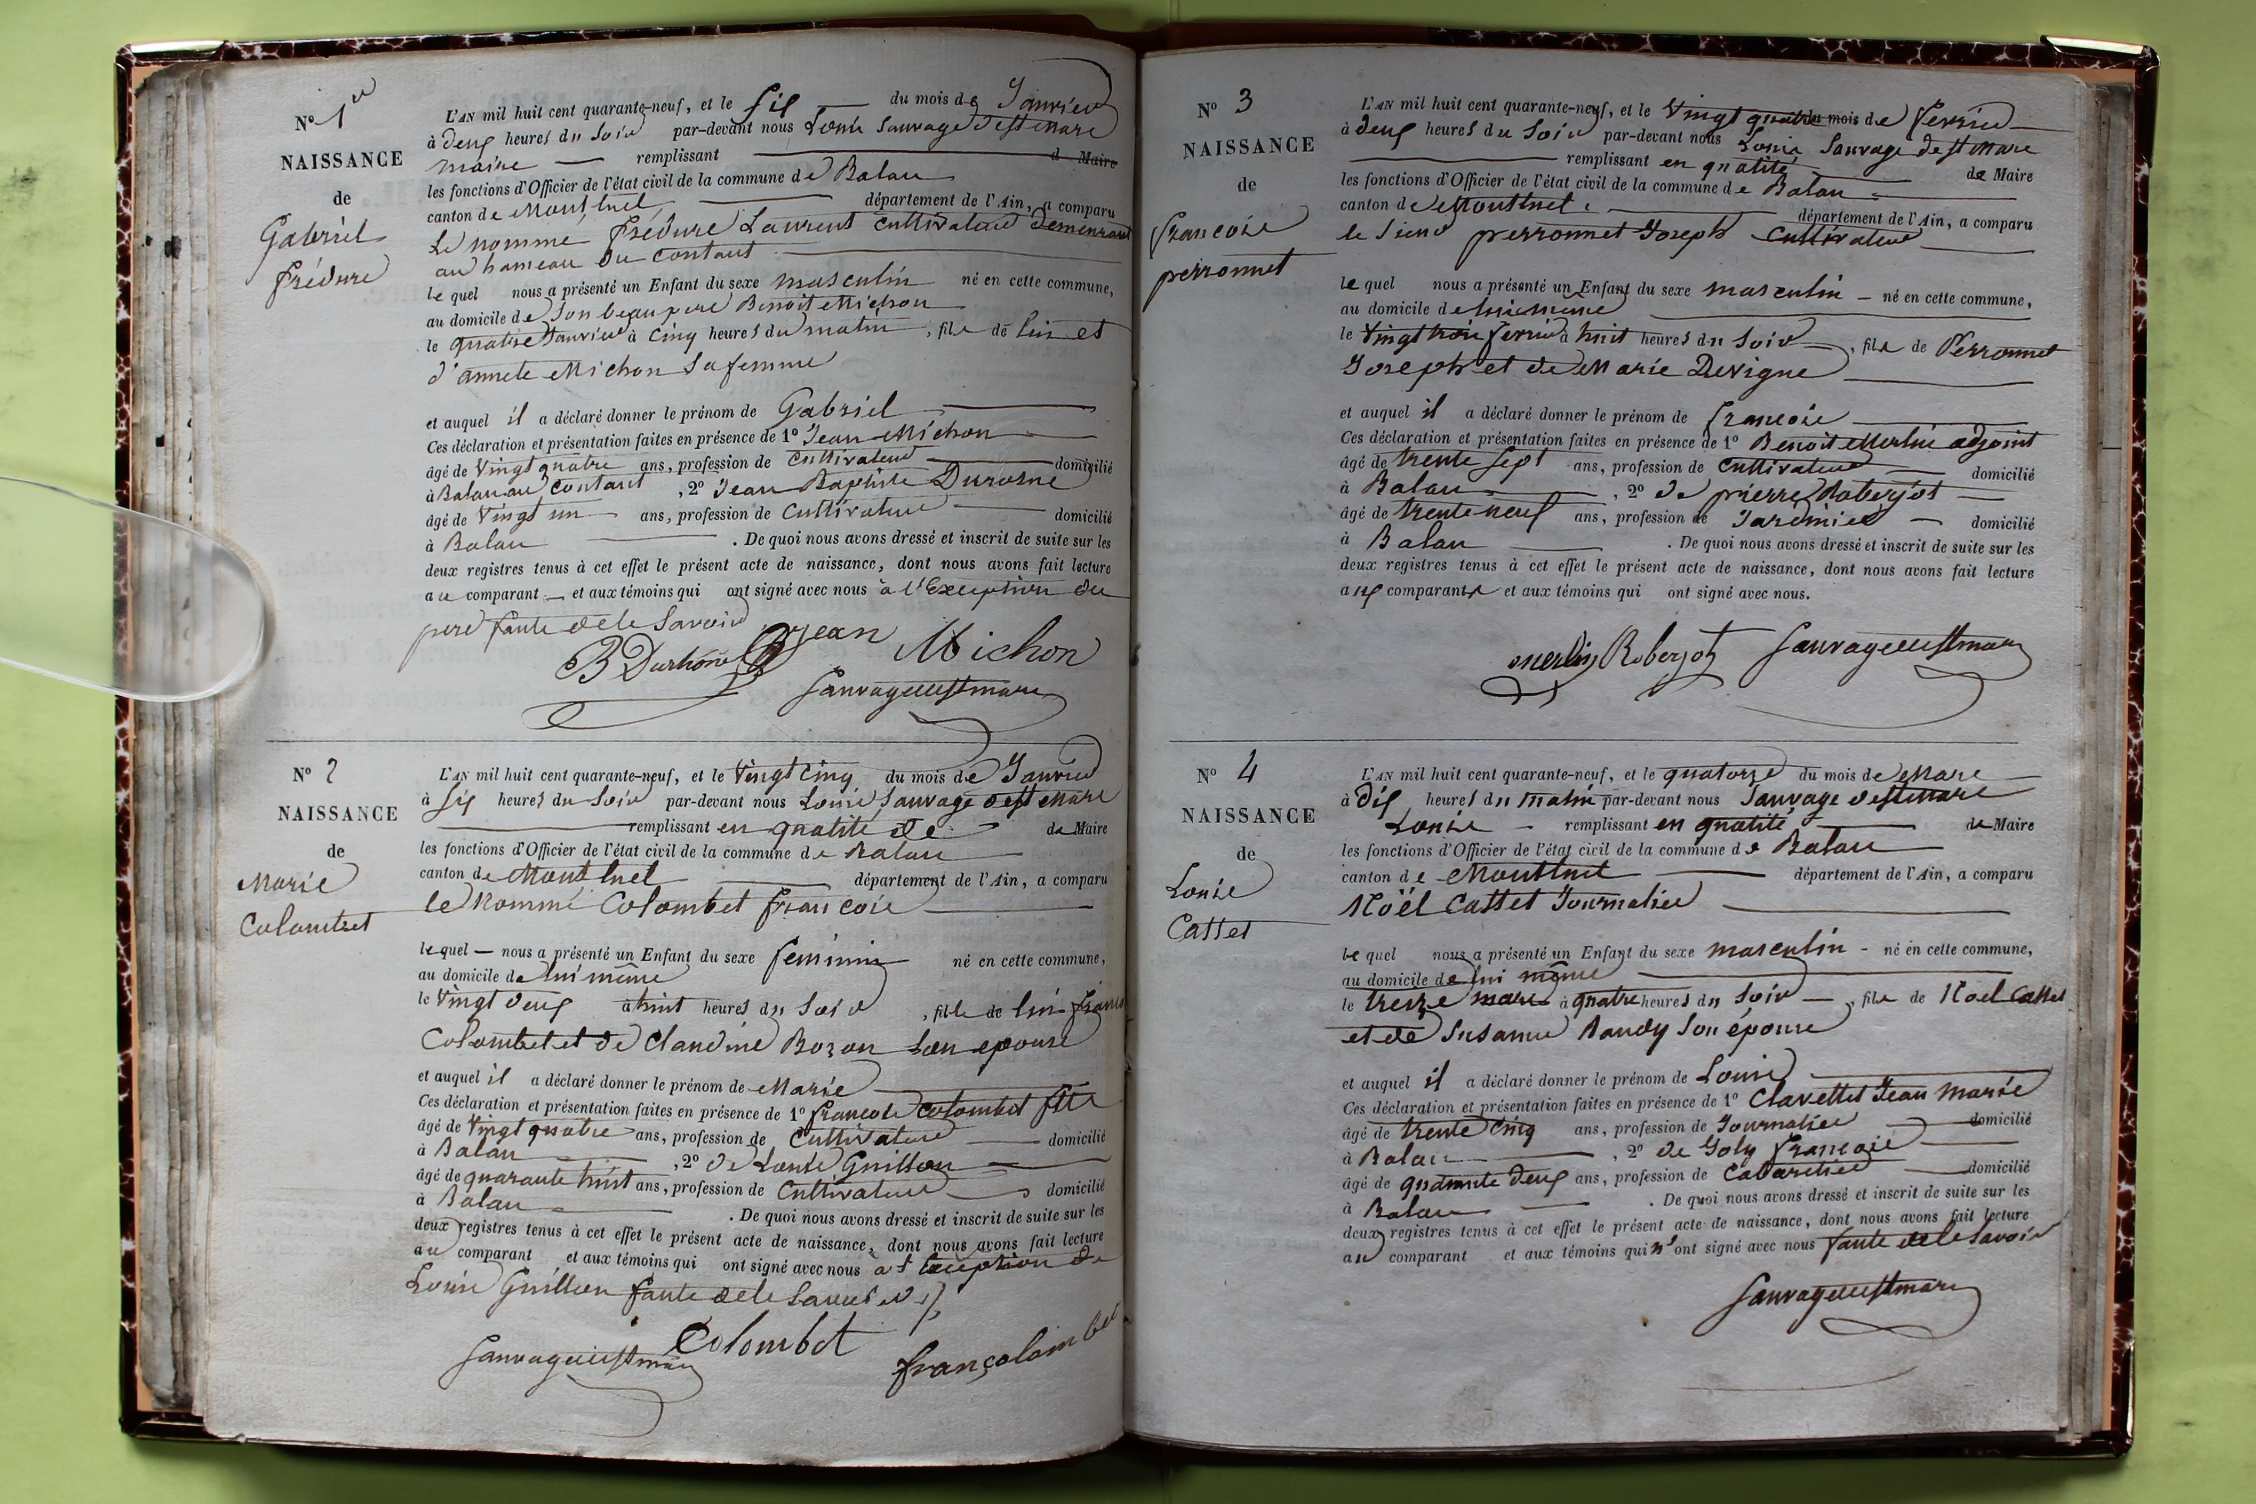 N° 1er
NAISSANCE
de
Gabriel
frédure
L'AN mil huit cent quarante-neuf, et le six du mois de Janvier
à deux heures du soir par-devant nous Louis Sauvage de st mare
maire remplissant d Maire
les fonctions d'Officier de l'état civil de la commune de Balan
canton de Montluel département de l'Ain, a comparu
Le nommé frédure Laurent cultivateur demeurant
au hameau du contant
lequel nous a présenté un Enfant du sexe masculin né en cette commune,
au domicile de son beau pere Benoit Michon
le quatre Janvier à cinq heures du matin, fils de lui et
d'annete Michon sa femme
et auquel il a déclaré donner le prénom de Gabriel
Ces déclaration et présentation faites en présence de 1° Jean Michon
âgé de vingt quatre ans, profession de cultivateur domicilié
à Balan au contant, 2° Jean Baptiste Durosne
âgé de vingt un ans, profession de cultivateur domicilié
à Balan. De quoi nous avons dressé et inscrit de suite sur les
deux registres tenus à cet effet le présent acte de naissance, dont nous avons fait lecture
au comparant et aux témoins qui ont signé avec nous à l'Exception du
pere faute de le savoir
B Durhone jean Michon
Sauvage de st mare
N° 2
NAISSANCE
de
Marie
Colombet
L'AN mil huit cent quarante-neuf, et le vingt cinq du mois de Janvier
à six heures du soir par-devant nous Louis Sauvage de st mare
remplissant en qualité de de Maire
les fonctions d'Officier de l'état civil de la commune de Balan
canton de Montluel département de l'Ain, a comparu
le Nommé Colombet françois
lequel nous a présenté un Enfant du sexe feminin né en cette commune,
au domicile de lui même
le vingt deux à huit heures du soir, fille de lui françois
Colombet et de Claudine Bozon son epouse
et auquel il a déclaré donner le prénom de Marie
Ces déclaration et présentation faites en présence de 1° françois Colombet fils
âgé de vingt quatre ans, profession de cultivateur domicilié
à Balan, 2° de Louis Guillon
âgé de quarante huit ans, profession de cultivateur domicilié
à Balan. De quoi nous avons dressé et inscrit de suite sur les
deux registres tenus à cet effet le présent acte de naissance, dont nous avons fait lecture
au comparant et aux témoins qui ont signé avec nous à l'exception de
Louis Guillon faute de le savoir
Sauvage de st mare Colombet françolombet
N° 3
NAISSANCE
de
françois
perronnet
L'AN mil huit cent quarante-neuf, et le vingt quatre du mois de fevrier
à deux heures du soir par-devant nous Louis Sauvage de st mare
remplissant en qualité de Maire
les fonctions d'Officier de l'état civil de la commune de Balan
canton de Montluel département de l'Ain, a comparu
le sieur perronnet Joseph cultivateur
lequel nous a présenté un Enfant du sexe masculin né en cette commune,
au domicile de lui meme
le vingt trois fevrier à huit heures du soir, fils de Perronnet
Joseph et de Marie Devigne
et auquel il a déclaré donner le prénom de françois
Ces déclaration et présentation faites en présence de 1° Benoit Merlin adjoint
âgé de trente sept ans, profession de cultivateur domicilié
à Balan, 2° de pierre Roberjot
âgé de trente neuf ans, profession de Jardinier domicilié
à Balan. De quoi nous avons dressé et inscrit de suite sur les
deux registres tenus à cet effet le présent acte de naissance, dont nous avons fait lecture
aux comparants et aux témoins qui ont signé avec nous.
merlin Roberjot Sauvage de st mare
N° 4
NAISSANCE
de
Louis
Cattet
L'AN mil huit cent quarante-neuf, et le quatorze du mois de Mars
à dix heures du matin par-devant nous Sauvage de st mare
Louis remplissant en qualité de Maire
les fonctions d'Officier de l'état civil de la commune de Balan
canton de Montluel département de l'Ain, a comparu
Noël Cattet Journalier
lequel nous a présenté un Enfant du sexe masculin né en cette commune,
au domicile de lui même
le treize mars à quatre heures du soir, fils de Noel Cattet
et de Susanne Bandy son épouse
et auquel il a déclaré donner le prénom de Louis
Ces déclaration et présentation faites en présence de 1° Clavettet Jean Marie
âgé de trente cinq ans, profession de Journalier domicilié
à Balan, 2° de Joly françois
âgé de quarante deux ans, profession de Cabaretier domicilié
à Balan. De quoi nous avons dressé et inscrit de suite sur les
deux registres tenus à cet effet le présent acte de naissance, dont nous avons fait lecture
au comparant et aux témoins qui n'ont signé avec nous faute de le savoir
Sauvage de st mare